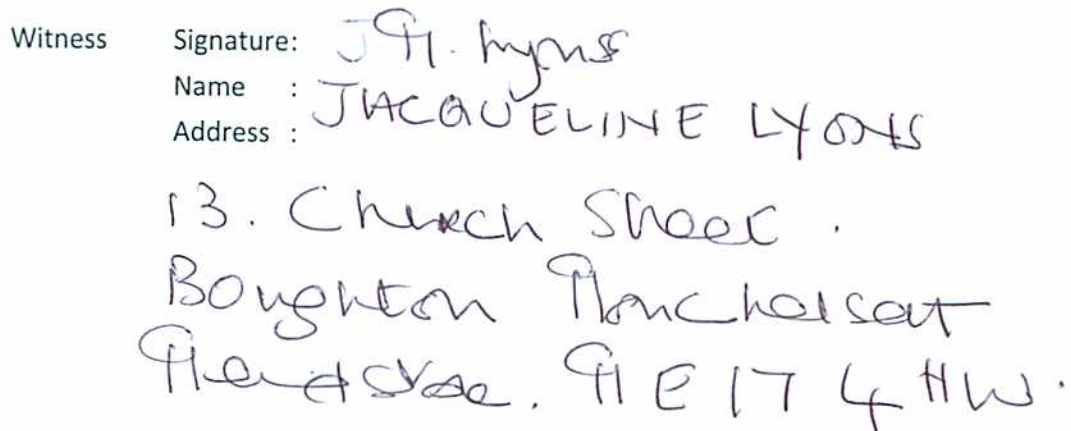 Witness Signature: JM. Lyons
Name : JACQUELINE LYONS
Address :
13. Church Street.
Boughton Monchelsea
Maidstone. ME17 4HW.